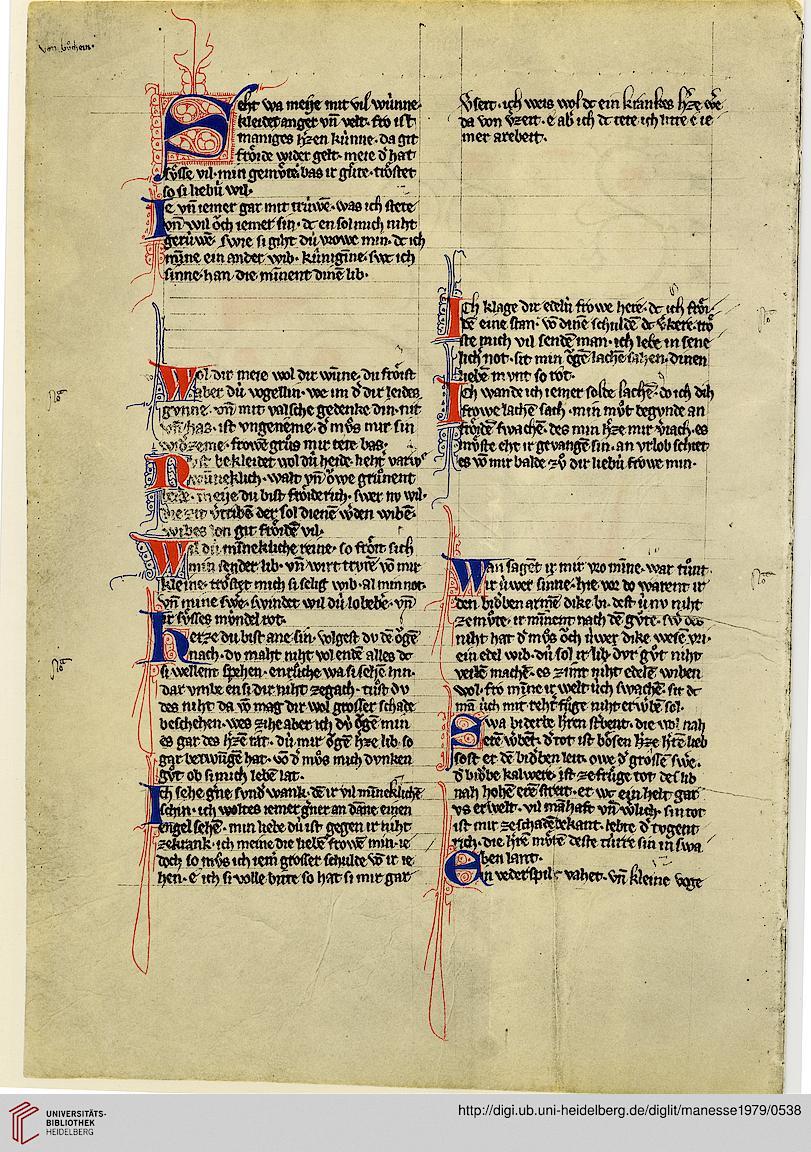 von bůchein.
Seht wa meije mit vil wunne.
kleidet anger vñ velt. fro ist
maniges h̄zen kunne. da git
froide wider gelt. meie d̾ hat
sůsse vil. min gemůte bas ir gůte. trostet
so si liebú wil.
Ie vñ iemer gar mit trúwē. was ich stete
vñ wil och iemer sin. dc en sol mich niht
gerúwē. swie si giht dú vrowe min. dc ich
minne ein ander wib. kúnigīne. swc ich
sinne. han. die minent dinē lib.
Wol dir meie wol dir wūne. du froist
aber dú vogellin. we im d̾ dir leides
gunne. vñ mit valsche gedenke din. nit
vñ has. ist vngeneme. d̾ můs mir sin
widzeme. frowē grůs mir tete bas.
bekleidet wol dú heide.
wúneklich. walt vñ owe grůnent
meije du bist froiderich. swer nv wil.
vertribē der sol dienē wden wibē.
wibes lon git froidē vil.
Wil dú minekliche reine. so froit sich
min sender lib. vñ wirt truren vō mir
kleine. trostet mich si selig wib. al min not.
vñ mine swē. swindet wil dú lobebē. vñ
ir sůsses mündel rot.
herze du bist ane sin. volgest du dē ogē
nach. du maht niht vol endē alles dc
si wellent spehen. enrůche wa si sehē hin.
dar vmbe en si dir niht ze gach. tůst du
des niht da vō mag dir wol grosser schade
beschehen. wes zihe aber ich dú ogē min
es gar des h̄zē rat. dú mir ogē h̄ze lib. so
gar betwungē hat. vō d̾ můs mich dvnken
gůt ob si mich lebē lat.
Ich sehe gne svnd wank. dē ir vil mīneklichē
schin. ich woltes iemer gner an dane einen
engel sehē. min liebe dú ist gegen ir niht
ze krank. ich meine die lieben frowē min. ie
doch so můs ich iem̄ grosser schulde vō ir ie
hen. e ich si volle bitte so hat si mir gar
v̾seit. ich weis wol dc ein krankes h̄ze wē
da von v̾zeit. e ab ich dc tete. ich litte e ie
mer arebeit.
Ich klage dir edelú frowe here. dc ich froi
dē eine stan. vō dinē schuldē dc v̾kere. tro
ste mich vil sendē man. ich lebe in sene
licher not. sit min ogē lachē sahen. dinen
liebē munt so rot.
Ich wande ich iemer solde lachē. do ich dich
frowe lachē sach. min můt begunde an
froidē swachē. des min h̄ze mir v̾iach. es
můste eht ir gevangē sin. an vrlob schiet
es vō mir balde zů dir liebú frowe min.
Wan saget ir mir vro minne. war tůnt
ir úwer sinne. hie vor do warent ir
den bid̾ben armē dike bi. dest ú nv niht
ze můte. ir minnent nach dē gůte. swdes
niht hat d̾ můs och úwer dike wesē vri.
ein edel wib. dú sol ir lib dvr gůt niht
veilē machē. es zimt niht edelē wiben
wol. fro minne ir welt úch swachē. sit dc
mā úch mit rehtfůge niht er wbē sol.
Swa biderbe h̄ren sterbent. die wol nah
erē wbent. d̾ tot ist bosen h̄ze h̄rē lieb
sost er dē bid̾ben leit. owe d̾ grossē swē.
d̾ bid̾be kalwere. ist ze frůge tot des lib
nah hohē erē streit. er wc ein helt gar
vs erwelt. vil māhaft vñ wlich. sin tot
ist mir ze schadē bekant. lebte d̾ tvgent
rich. die h̄rē můtē deste túrre sin in swa
ben lant.
Ein vederspil vahet. vñ kleine voge
UNIVERSITÄTS-
BIBLIOTHEK
HEIDELBERG
http://digi.ub.uni-heidelberg.de/diglit/manesse1979/0538